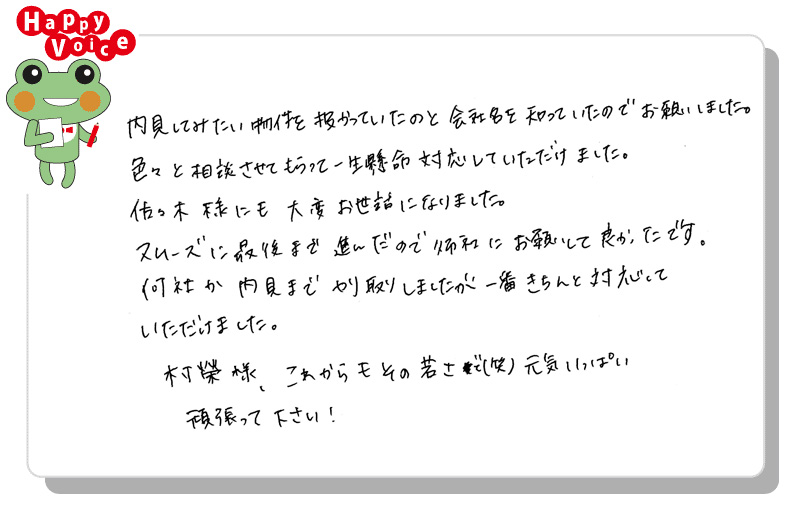 Happy
Voice
内見してみたい物件を扱かっていたのと会社名を知っていたのでお願いしました。
色々と相談させてもらって一生懸命対応していただけました。
佐々木様にも大変お世話になりました。
スムーズに最後まで進んだので御社にお願いして良かったです。
何社か内見までやり取りしましたが一番きちんと対応して
いただけました。
村榮様、これからもその若さで(笑)元気いっぱい
頑張って下さい!